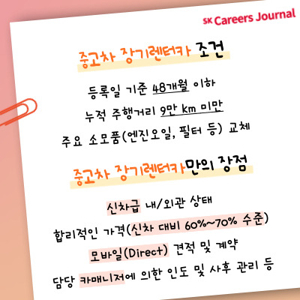 SK Careers Journal
중고차 장기렌터카 조건
등록일 기준 48개월 이하
누적 주행거리 9만 km 미만
주요 소모품(엔진오일, 필터 등) 교체
중고차 장기렌터카만의 장점
신차급 내/외관 상태
합리적인 가격(신차 대비 60%~70% 수준)
모바일(Direct) 견적 및 계약
담당 카매니저에 의한 인도 및 사후 관리 등